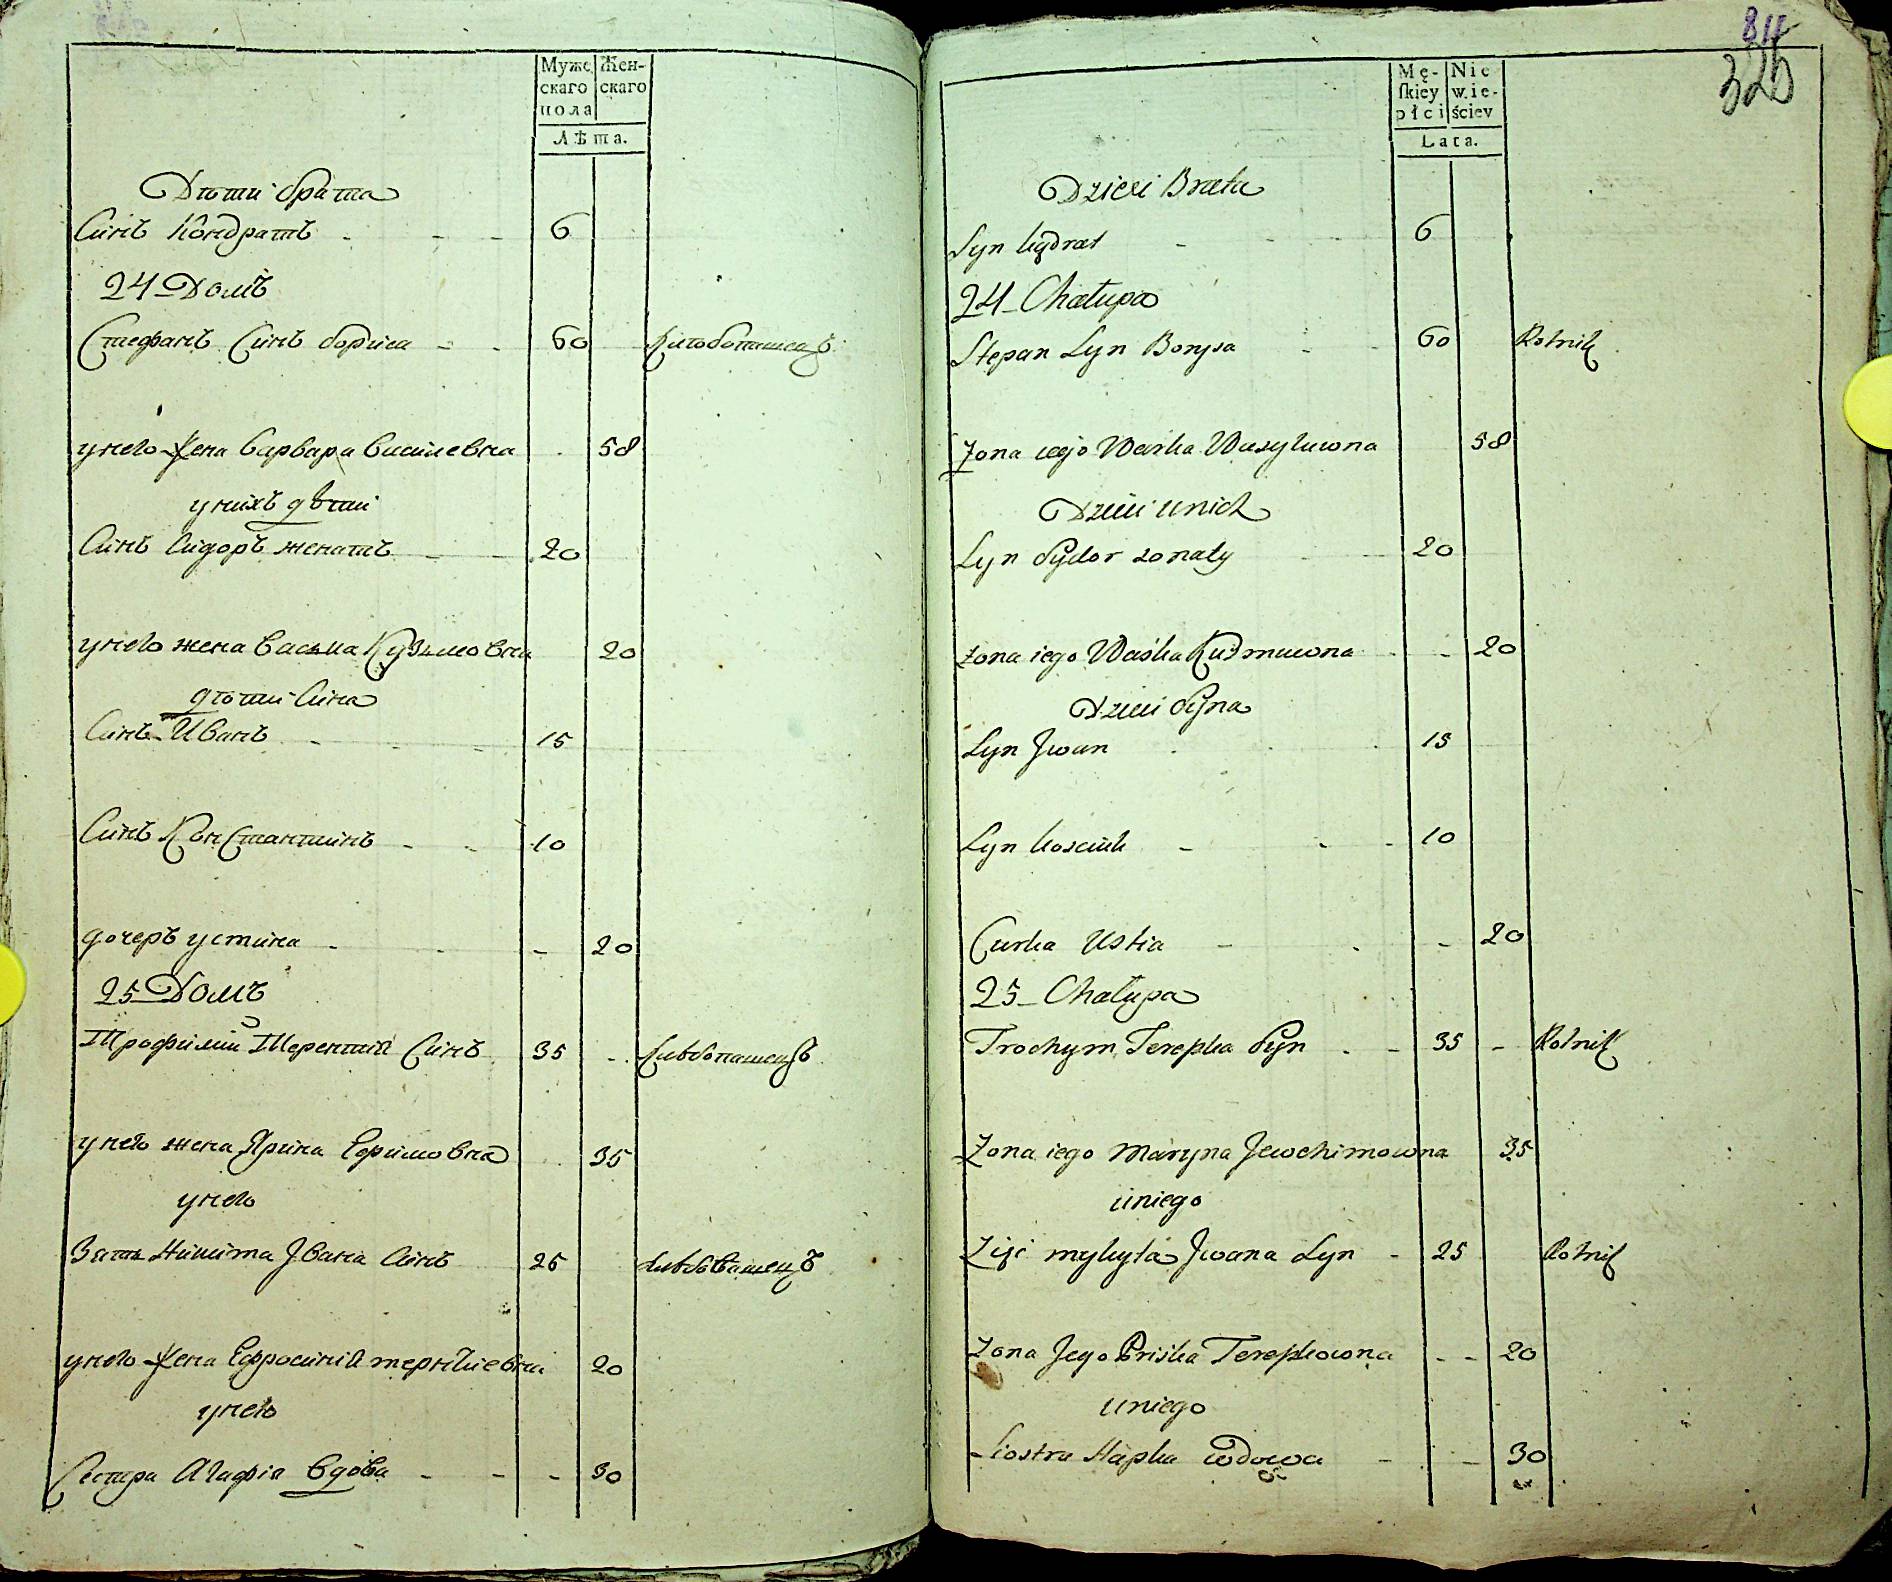 Муже Жен-
скаго скаго
пола
Лѣта.
Дѣти брата
Синъ Кондратъ - - - 6
24 Домъ
Стефанъ Синъ бориса - - 60 хлѣбопашецъ
унего Жена Варвара Василевна 58
унихъ дѣти
Синъ Сидоръ женатъ - - 20
унего жена Васька Кузьмовна 20
дѣти Сина
Синъ Иванъ - - - 15
Синъ Константинъ - - 10
дочеръ устина - - - 20
25 Домъ
Трофимъ Терентій Синъ 35 - хлѣбопашецъ
унего жена Ярина Ефимовна 35
унего
Зять Никита Iвана Синъ 25 хлѣбопашецъ
унего Жена Ефросиній терентиевна 20
унего
Сестра Агафія Вдова - - - 30
811
325
Mę- Nie
ſkiey wie-
płci ściey
Lata.
Dzieci Brata
Syn kądrat - - - 6
24 - Chałupa
Stepan Syn Borysa - - 60 Rolnik
Zona iego Warka Wasylowna 58
Dzieci unich
Syn Sydor zonaty - 20
zona iego Waśka Kuzmuwna - - 20
Dzieci Syna
Syn Jwan - - - 15
Syn kosciuk - - - 10
Curka Ustia - - - 20
25 - Chałupa
Trochym Terepka Syn - - 35 - Rolnik
Zona iego Maryna Jewchimowna 35
uniego
Zięć mykyta Jwana Syn - 25 Rolnik
Zona Jego Priska Terepkowna - - 20
uniego
Siostra Hapka wdowa - - 30